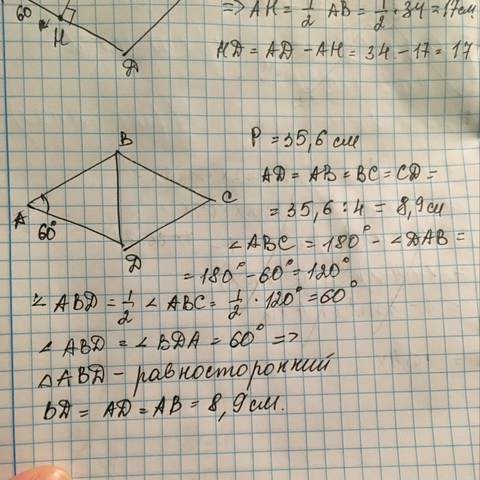 60
H
D
=> AH = 1/2 AB = 1/2 · 34 = 17см
HD = AD - AH = 34 - 17 = 17
A
B
C
D
60°
P = 35,6 см
AD = AB = BC = CD =
= 35,6 : 4 = 8,9см
∠ABC = 180° - ∠DAB =
= 180° - 60° = 120°
∠ABD = 1/2 ∠ABC = 1/2 · 120° = 60°
∠ABD = ∠BDA = 60° =>
△ABD - равносторонний
BD = AD = AB = 8,9см.